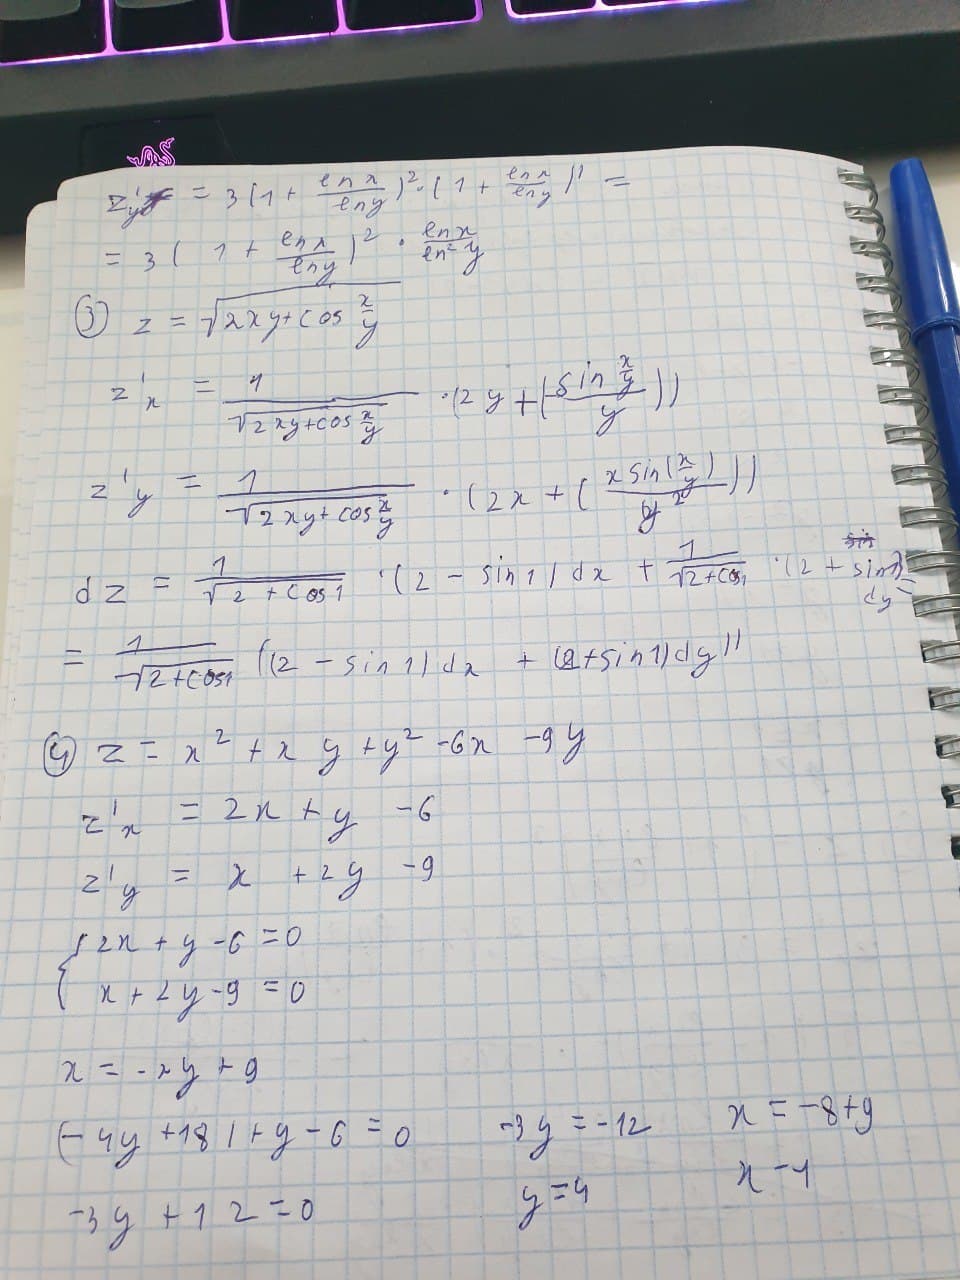 z'y = 3(1 + ln x/ln y)²·(1 + ln x/ln y)' =
= 3(1 + ln x/ln y)² · ln x/ln² y
③ z = √(2xy+cos x/y)
z'x = 1/√(2xy+cos x/y) ·(2y+(-sin x/y / y))
z'y = 1/√(2xy+cos x/y) · (2x + (x sin(x/y)/y²))
dz = 1/√(2+cos1) ·(2 - sin1) dx + 1/√(2+cos1) ·(2 + sin1) dy =
= 1/√(2+cos1) ((2 - sin1) dx + (2+sin1)dy)
④ z = x² + xy + y² -6x -9y
z'x = 2x + y -6
z'y = x + 2y -9
{ 2x + y -6 = 0
x + 2y -9 = 0
x = -2y + 9
(-4y +18) + y - 6 = 0 -3y = -12 x = -8+9
-3y + 12 = 0 y = 4 x - 1